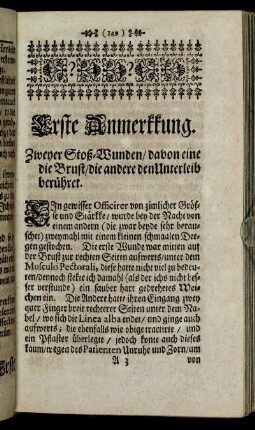 Erste Anmerkkung.
Zweyer Stoß-Wunden / davon eine
die Brust / die andere den Unterleib
berühret.
EIn gewisser Officirer von zimlicher Größ-
se und Stärkke / wurde bey der Nacht von
einem andern (die zwar beyde sehr berau-
schet) zweymahl mit einem kleinen schmaalen De-
gen gestochen. Die erste Wunde war mitten auf
der Brust zur rechten Seiten aufwerts / unter dem
Musculo Pectorali, diese hatte nicht viel zu bedeu-
ten / dennoch stekte ich damahl (als der ichs nicht bes-
ser verstunde) ein sauber hart gedrehetes Wei-
chen ein. Die Andere hatte ihren Eingang zwey
quer Finger breit rechterer Seiten unter dem Na-
bel / wo sich die Linea alba endet / und ginge auch
aufwerts; die ebenfalls wie obige tractirte / und
ein Pflaster überlegte / jedoch konte auch dieses
kaum / wegen des Patienten Unruhe und Zorn / um
A 3 von